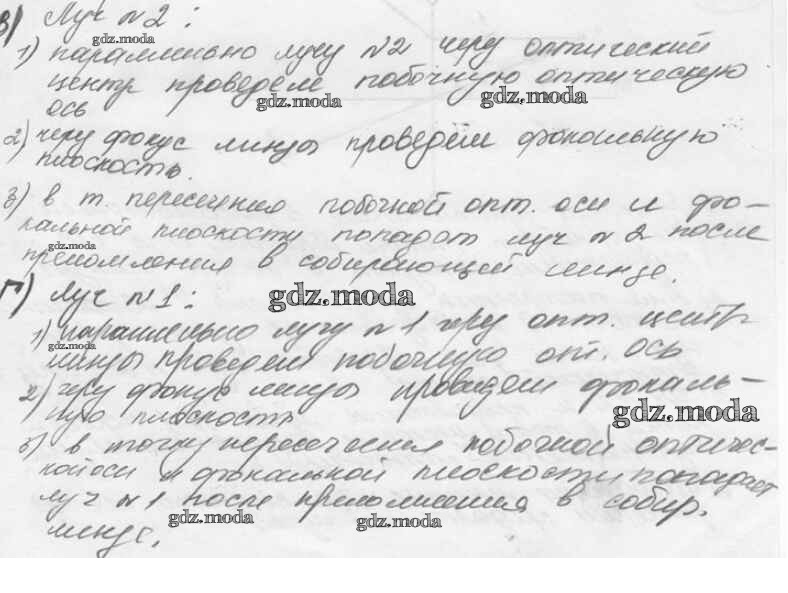 в) Луч №2:
1) параллельно лучу №2 через оптический
центр проведем побочную оптическую
ось
2) через фокус линзы проведём фокальную
плоскость.
3) в т. пересечения побочной опт. оси и фо-
кальной плоскости попадает луч №2 после
преломления в собирающей линзе.
г) Луч №1:
1) параллельно лучу №1 через опт. центр
линзы проведем побочную оп. ось
2) через фокус линзы проведем фокаль-
ную плоскость
3) в точку пересечения побочной оптичес-
кой оси и фокальной плоскости попадает
луч №1 после преломления в собир.
линзе.
gdz.moda
gdz.moda
gdz.moda
gdz.moda
gdz.moda
gdz.moda
gdz.moda
gdz.moda
gdz.moda